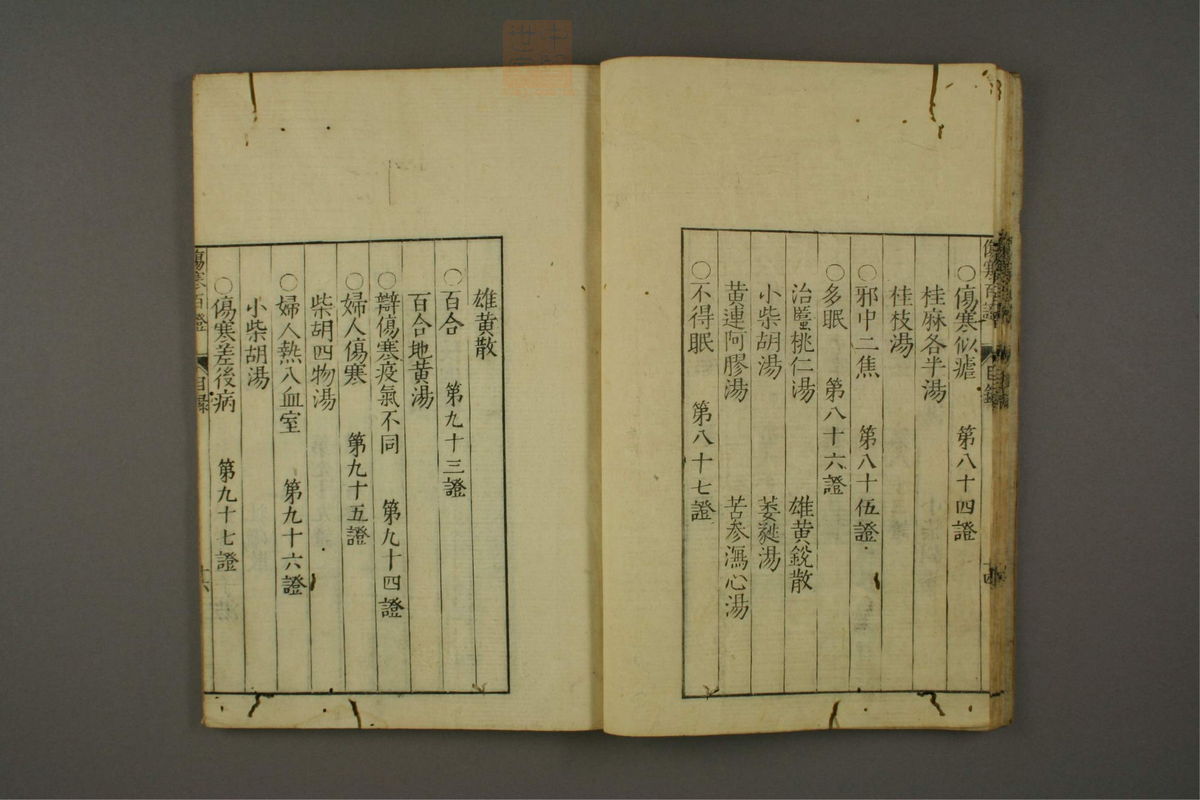 傷寒百證
目錄
○傷寒似瘧 第八十四證
桂麻各半湯
桂枝湯
○邪中二焦 第八十伍證
○多眠 第八十六證
治𧏾桃仁湯 雄黄銳散
小柴胡湯 萎蕤湯
黄連阿膠湯 苦参瀉心湯
○不得眠 第八十七證
雄黄散
○百合 第九十三證
百合地黄湯
○辯傷寒疫氣不同 第九十四證
○婦人傷寒 第九十五證
柴胡四物湯
○婦人熱入血室 第九十六證
小柴胡湯
○傷寒差後病 第九十七證
傷寒百證
目録
十六